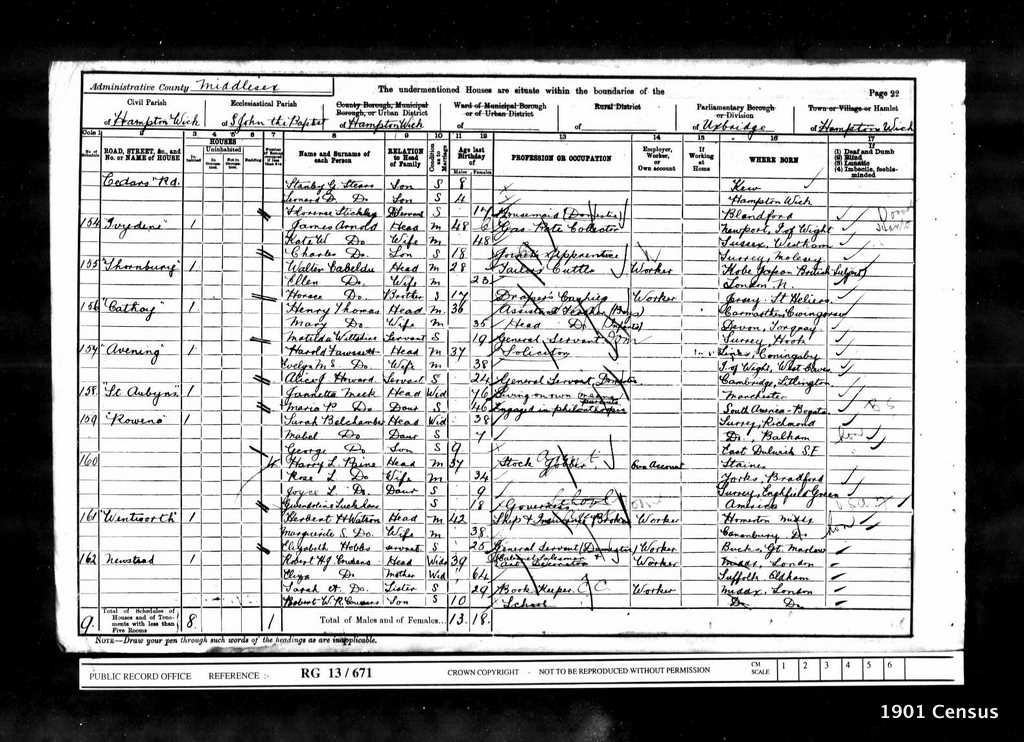 Administrative County Middlesex
The undermentioned Houses are situate within the boundaries of the
Page 22
Civil Parish Ecclesiastical Parish County Borough, Municipal Borough, or Urban District Ward of Municipal Borough or of Urban District Rural District Parliamentary Borough or Division Town or Village or Hamlet
of Hampton Wick of S John the Baptist of Hampton Wick of of of Uxbridge of Hampton Wick
Cols 1 2 3 4 5 6 7 8 9 10 11 12 13 14 15 16 17
No. of Schedule ROAD, STREET, &c., and No. or NAME of HOUSE HOUSES Inhabited Uninhabited Building Name and Surname of each Person RELATION to Head of Family Condition as to Marriage Age last Birthday of Males Females PROFESSION OR OCCUPATION Employer, Worker, or Own account If Working at Home WHERE BORN If (1) Deaf and Dumb (2) Blind (3) Lunatic (4) Imbecile, feeble-minded
Cedars Rd. Stanley G. Son S 8 Kew
Leonard D. Do Son S 4 Hampton Wick
Florence Servant S 17 Housemaid (Domestic) Blandford
154 "Ivydene" 1 James Arnold Head M 48 Gas Rate Collector Newport, I of Wight
Kate W Do Wife M 48 Sussex,
Charles Do. Son S 18 Apprentice Surrey, Molesey
155 "Thornbury" 1 Walter Head M 28 Tailors Cutter Worker Kobe Japan British Subject
Ellen Do. Wife M 23 London N.
Horace Do. Brother S 17 Drapers Worker Jersey St Heliers
156 "Cathay" 1 Henry Thomas Head M 36 Assistant Teacher (Boys)
Mary Do Wife M 35 Head Do Devon, Torquay
Matilda Wiltshire Servant S 19 General Servant Dom Surrey, Hook
157 "Avening" 1 Harold Fawcett Head M 37 Solicitor Lincs, Coningsby
Evelyn M. S Do. Wife M 38 I. of Wight, West Cowes
Alice J Howard Servant S 24 General Servant, Domestic Cambridge, Litlington
158 "St Aubyns" 1 Jannetta Meek Head Wid 76 Living on own means Manchester
Maria P. Do Daur S 46 Engaged in philanthropic South America - Bogota
159 "Rowena" 1 Sarah Belchamber Head Wid 38 Surrey, Richmond
Mabel Do Daur S 7 Do, Balham
George Do Son S 9 East Dulwich S.E
160 Harry L. Head M 37 Stock Jobber Own Account Staines
Rose L Do Wife M 34 Yorks, Bradford
Joyce L Do. Daur S 9 Surrey, Englefield Green
S 18 Governess School America
161 "Wentworth" 1 Herbert H Watson Head M 42 Ship & Insurance Broker Worker Homerton Middx
Marguerite S. Do. Wife M 38 Canonbury Do
Elizabeth Hobbs servant S 25 General Servant (Domestic) Worker Bucks Gt. Marlow
162 Newstead 1 Robert H J Cousens Head Wid 39 Salesman Worker Middx, London
Eliza Do Mother Wid 64 Suffolk
Sarah A. Do. Sister S 29 Book Keeper Worker Middx, London
Robert W. R. Cousens Son S 10 School Do Do
9 Total of Schedules of Houses and of Tenements with less than Five Rooms 8 1 Total of Males and of Females... 13 18
NOTE—Draw your pen through such words of the headings as are inapplicable.
PUBLIC RECORD OFFICE REFERENCE :- RG 13/671 CROWN COPYRIGHT - NOT TO BE REPRODUCED WITHOUT PERMISSION CM SCALE 1 2 3 4 5 6
1901 Census